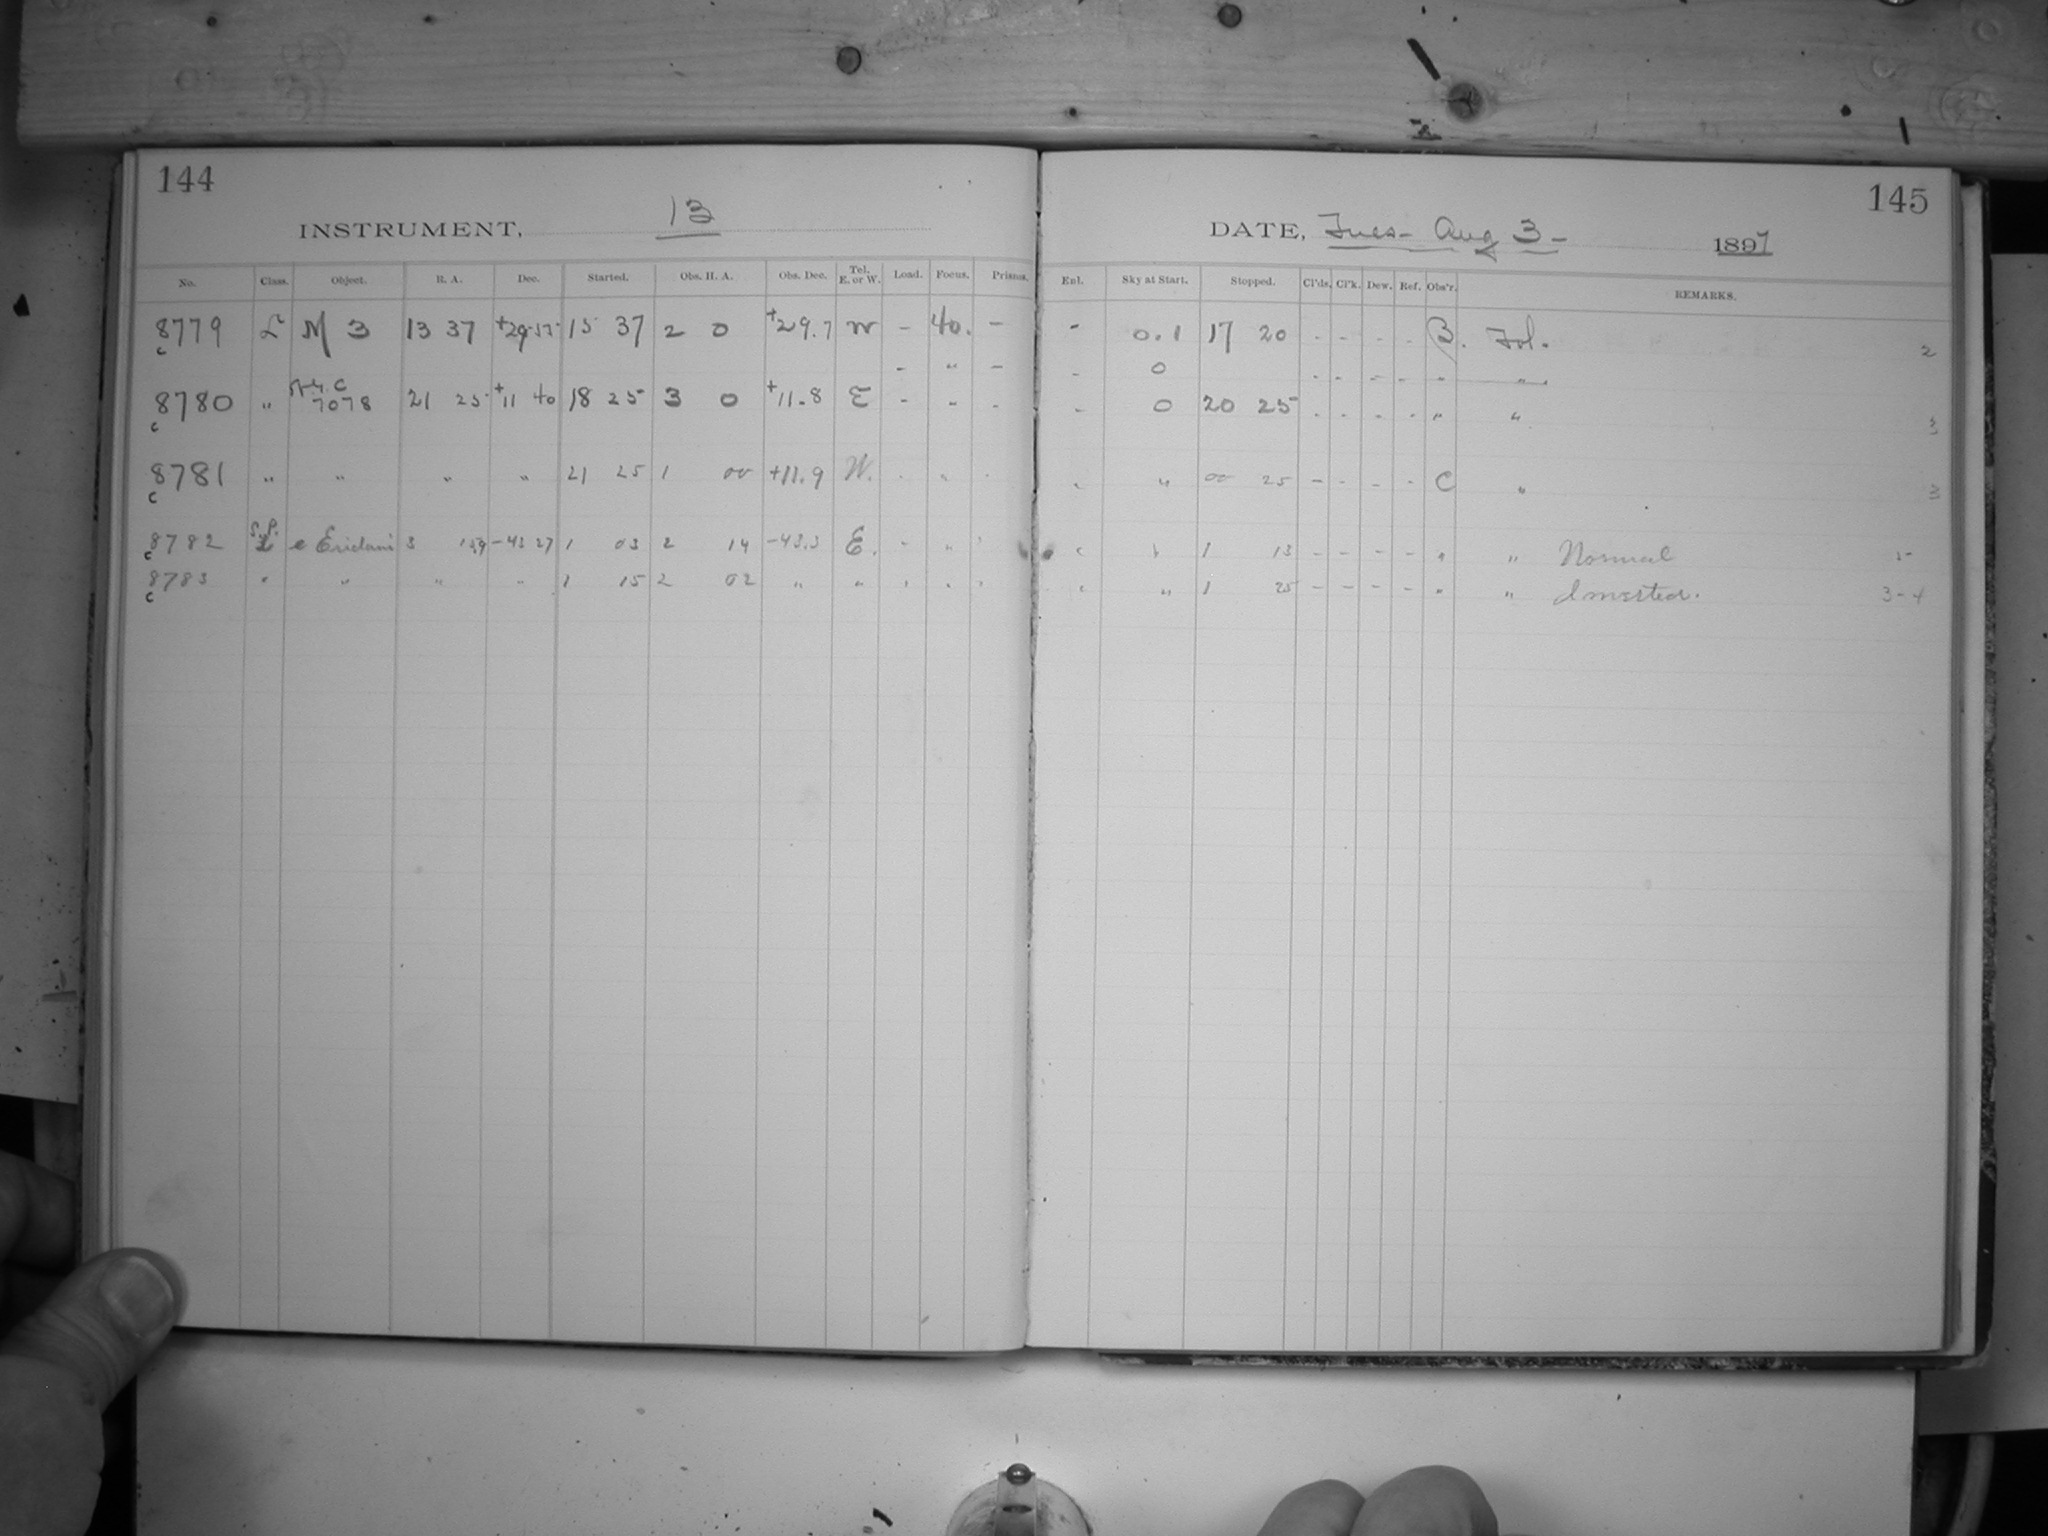 144
INSTRUMENT, 13
No. Class. Object. R. A. Dec. Started. Obs. H. A. Obs. Dec. Tel. E. or W. Load. Focus. Prisms.
8779 L M 3 13 37 15 37 2 0 +29.7 W - 40. -
c
8780 " N.G.C 7078 21 25 +11 40 18 25 3 0 +11.8 E - " -
c
8781 " " " " 21 25 1 00 +11.9 W. - " -
c
8782 e Eridani 3 -43 27 1 03 2 14 -43.3 E. - "
c
8783 " " " " 1 15 2 02 " " " "
c
145
DATE, Tues- Aug 3- 1897
Enl. Sky at Start. Stopped. Cl'ds. Cl'k. Dew. Ref. Obs'r. REMARKS.
- 0.1 17 20 - - - - B. Fol. 2
- 0 - - - - " "
- 0 20 25 - - - - " " 3
" 00 25 - - - - C " 3
1 13 - - - - " " Normal 5
" 1 25 - - - - " " Inverted. 3-4